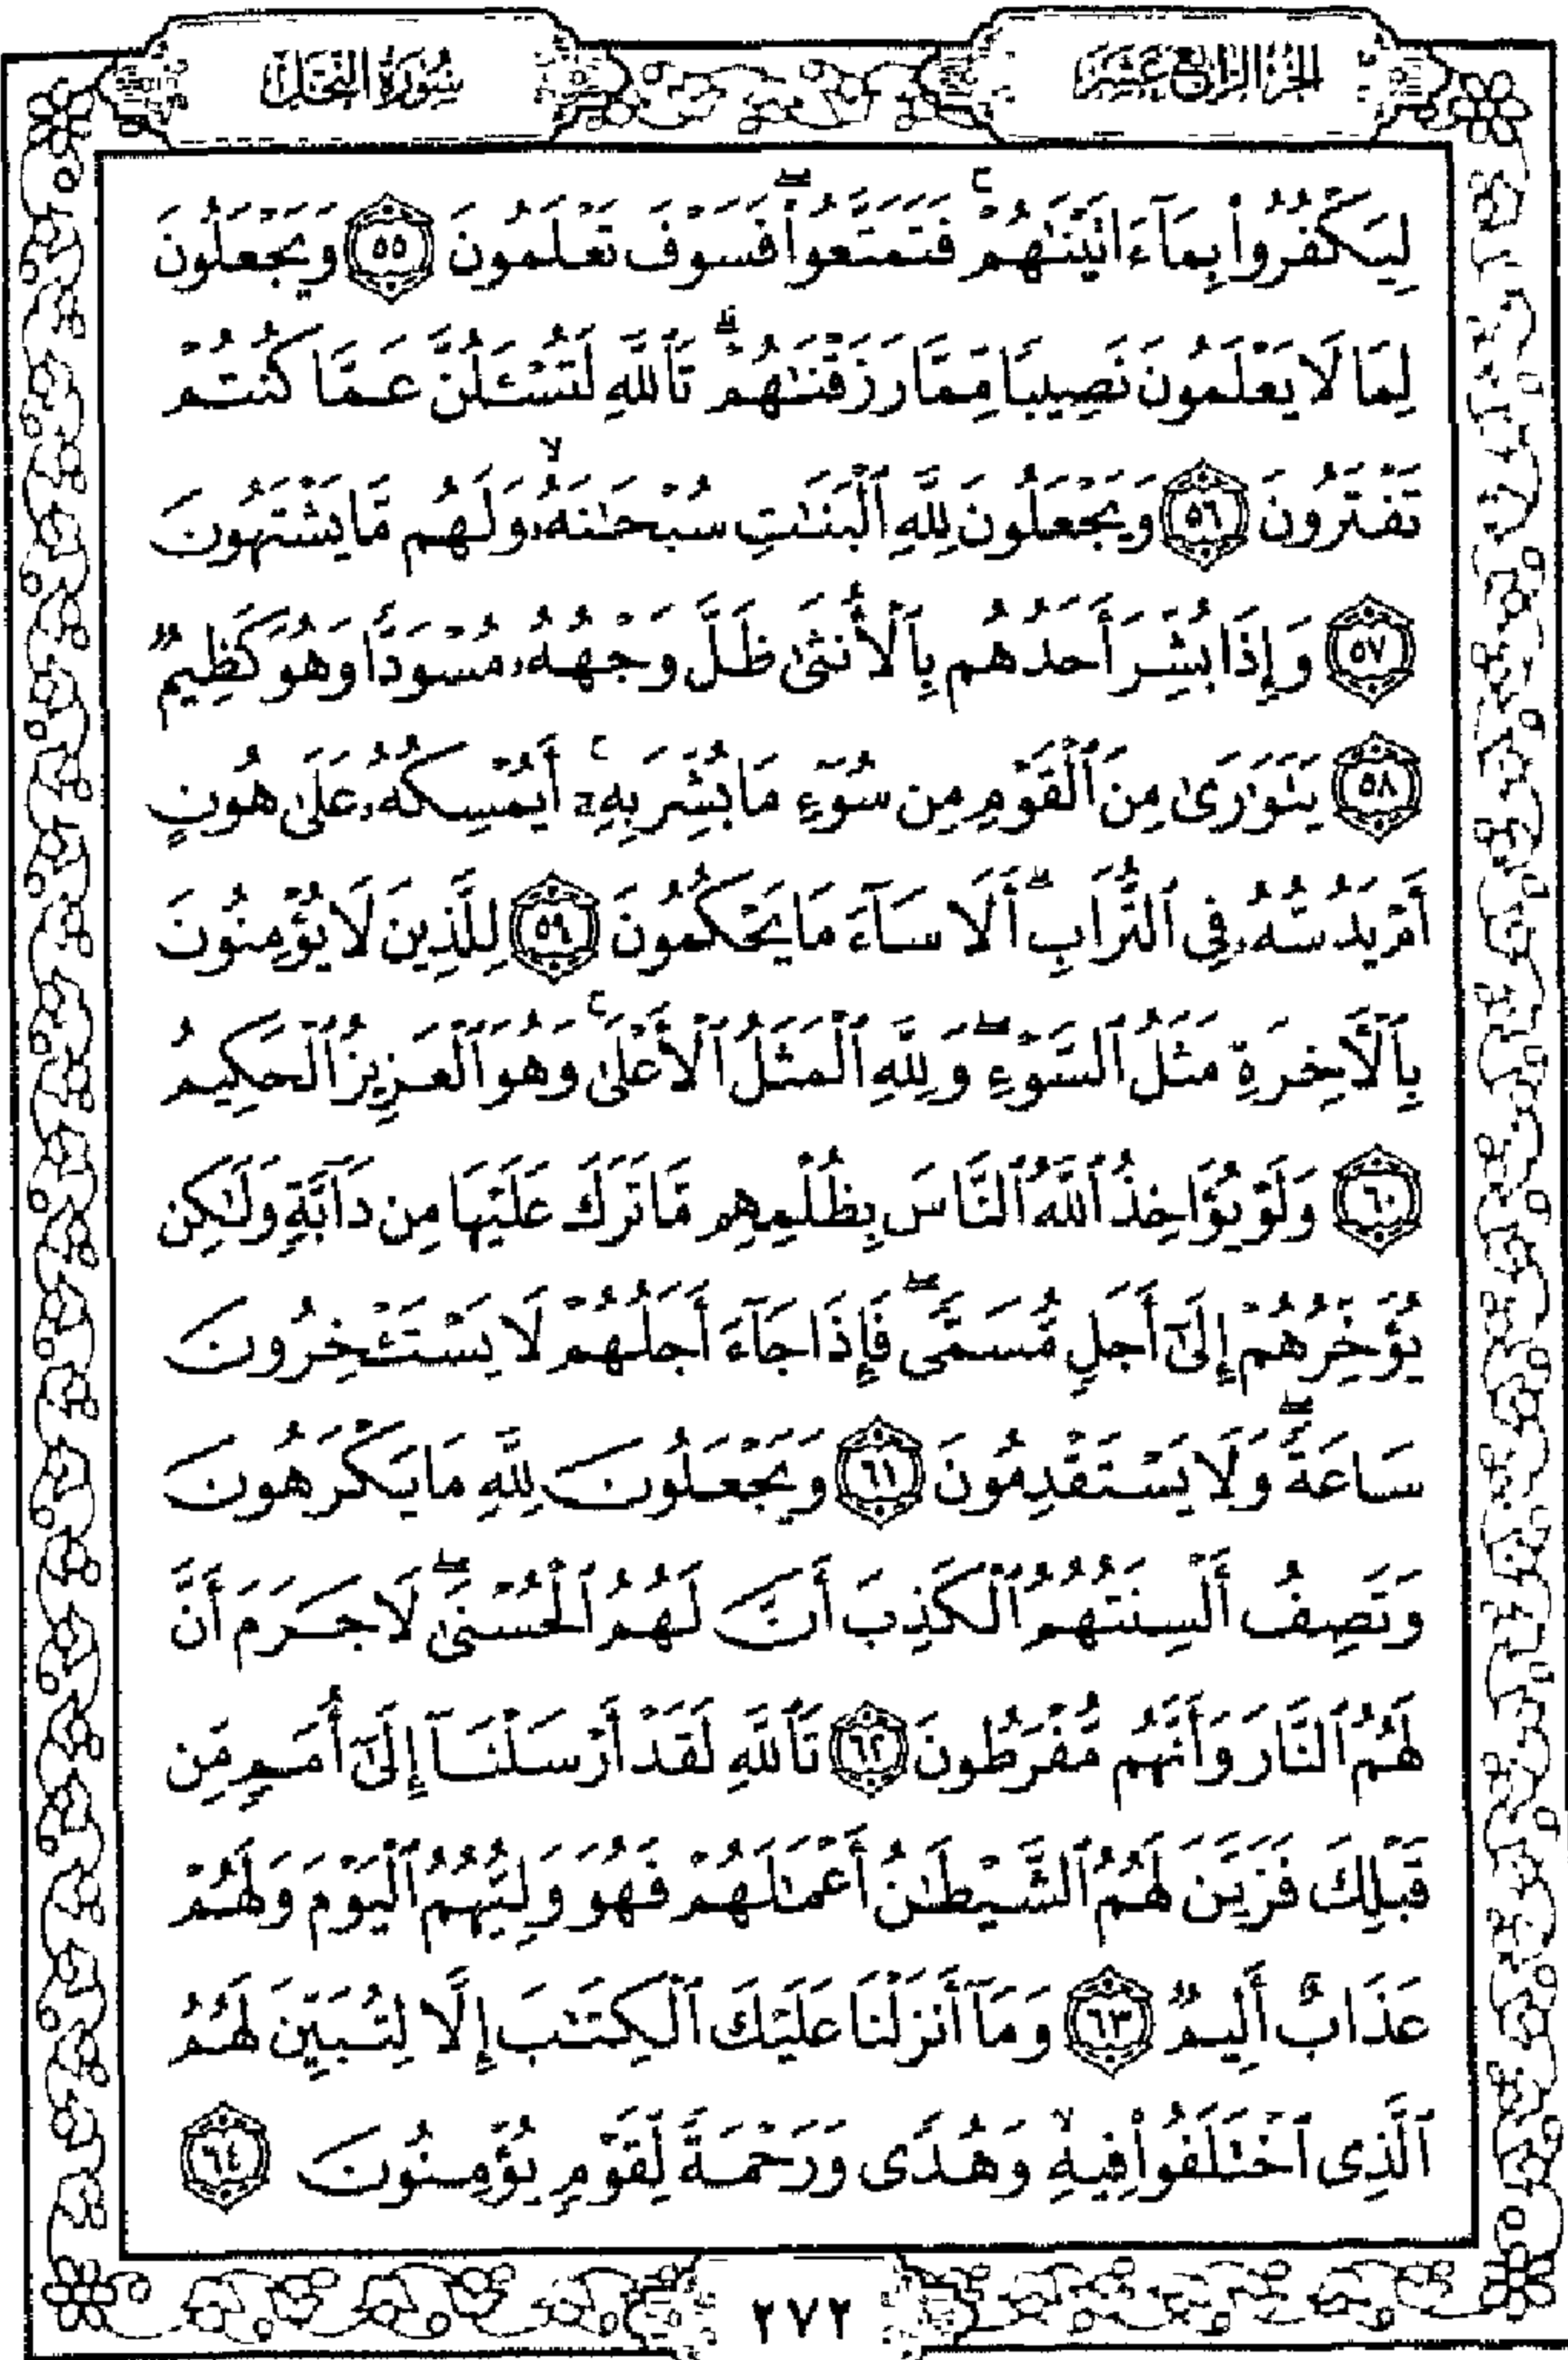 الجزء الرابع عشر
سورة النحل
لِيَكْفُرُوا۟ بِمَآ ءَاتَيْنَـٰهُمْ ۚ فَتَمَتَّعُوا۟ ۖ فَسَوْفَ تَعْلَمُونَ ٥٥ وَيَجْعَلُونَ
لِمَا لَا يَعْلَمُونَ نَصِيبًا مِّمَّا رَزَقْنَـٰهُمْ ۗ تَٱللَّهِ لَتُسْـَٔلُنَّ عَمَّا كُنتُمْ
تَفْتَرُونَ ٥٦ وَيَجْعَلُونَ لِلَّهِ ٱلْبَنَـٰتِ سُبْحَـٰنَهُۥ ۙ وَلَهُم مَّا يَشْتَهُونَ
٥٧ وَإِذَا بُشِّرَ أَحَدُهُم بِٱلْأُنثَىٰ ظَلَّ وَجْهُهُۥ مُسْوَدًّا وَهُوَ كَظِيمٌ
٥٨ يَتَوَٰرَىٰ مِنَ ٱلْقَوْمِ مِن سُوٓءِ مَا بُشِّرَ بِهِۦٓ ۚ أَيُمْسِكُهُۥ عَلَىٰ هُونٍ
أَمْ يَدُسُّهُۥ فِى ٱلتُّرَابِ ۗ أَلَا سَآءَ مَا يَحْكُمُونَ ٥٩ لِلَّذِينَ لَا يُؤْمِنُونَ
بِٱلْـَٔاخِرَةِ مَثَلُ ٱلسَّوْءِ ۖ وَلِلَّهِ ٱلْمَثَلُ ٱلْأَعْلَىٰ ۚ وَهُوَ ٱلْعَزِيزُ ٱلْحَكِيمُ
٦٠ وَلَوْ يُؤَاخِذُ ٱللَّهُ ٱلنَّاسَ بِظُلْمِهِم مَّا تَرَكَ عَلَيْهَا مِن دَآبَّةٍ وَلَـٰكِن
يُؤَخِّرُهُمْ إِلَىٰٓ أَجَلٍ مُّسَمًّى ۖ فَإِذَا جَآءَ أَجَلُهُمْ لَا يَسْتَـْٔخِرُونَ
سَاعَةً ۖ وَلَا يَسْتَقْدِمُونَ ٦١ وَيَجْعَلُونَ لِلَّهِ مَا يَكْرَهُونَ
وَتَصِفُ أَلْسِنَتُهُمُ ٱلْكَذِبَ أَنَّ لَهُمُ ٱلْحُسْنَىٰ ۖ لَا جَرَمَ أَنَّ
لَهُمُ ٱلنَّارَ وَأَنَّهُم مُّفْرَطُونَ ٦٢ تَٱللَّهِ لَقَدْ أَرْسَلْنَآ إِلَىٰٓ أُمَمٍ مِّن
قَبْلِكَ فَزَيَّنَ لَهُمُ ٱلشَّيْطَـٰنُ أَعْمَـٰلَهُمْ فَهُوَ وَلِيُّهُمُ ٱلْيَوْمَ وَلَهُمْ
عَذَابٌ أَلِيمٌ ٦٣ وَمَآ أَنزَلْنَا عَلَيْكَ ٱلْكِتَـٰبَ إِلَّا لِتُبَيِّنَ لَهُمُ
ٱلَّذِى ٱخْتَلَفُوا۟ فِيهِ ۙ وَهُدًى وَرَحْمَةً لِّقَوْمٍ يُؤْمِنُونَ ٦٤
٢٧٢